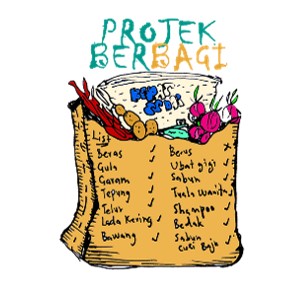 PROJEK
BERBAGI
List
Beras
Gula
Garam
Tepung
Telur
Lada Kering
Bawang
Berus
Ubat gigi
Sabun
Tuala Wanita
Shampoo
Bedak
Sabun
Cuci Baju